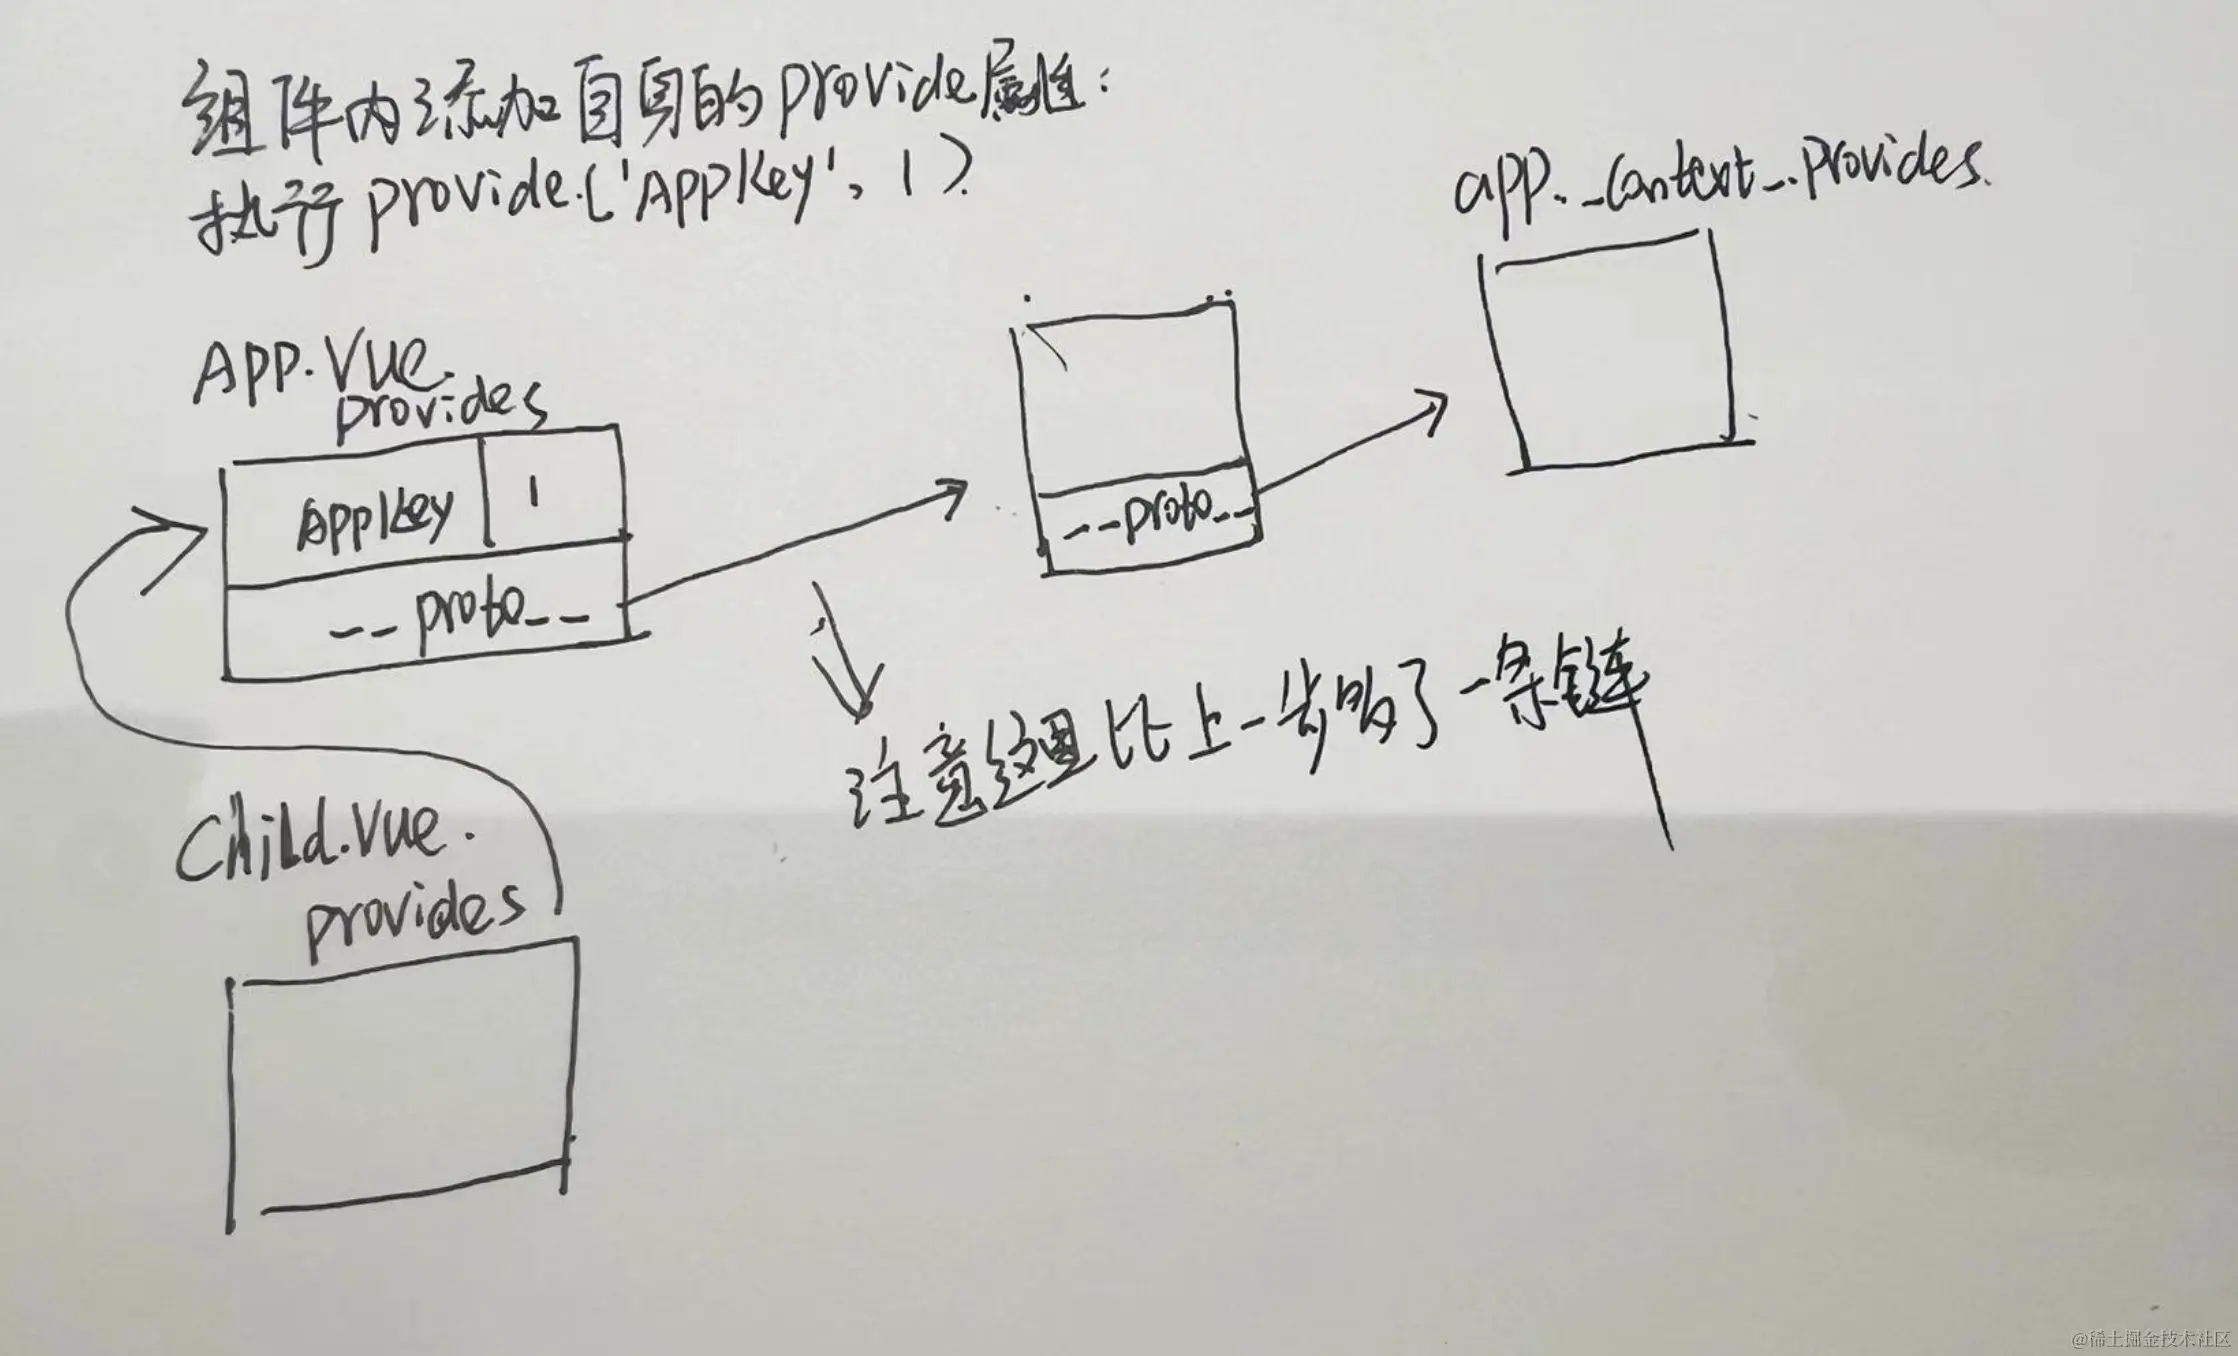 组件内添加自身的provide属性:
执行provide('AppKey', 1)
app._context_.provides
App.vue.
provides
AppKey 1
__proto__
__proto__
注意这里比上一步多了一条链
Child.vue.
provides
@稀土掘金技术社区